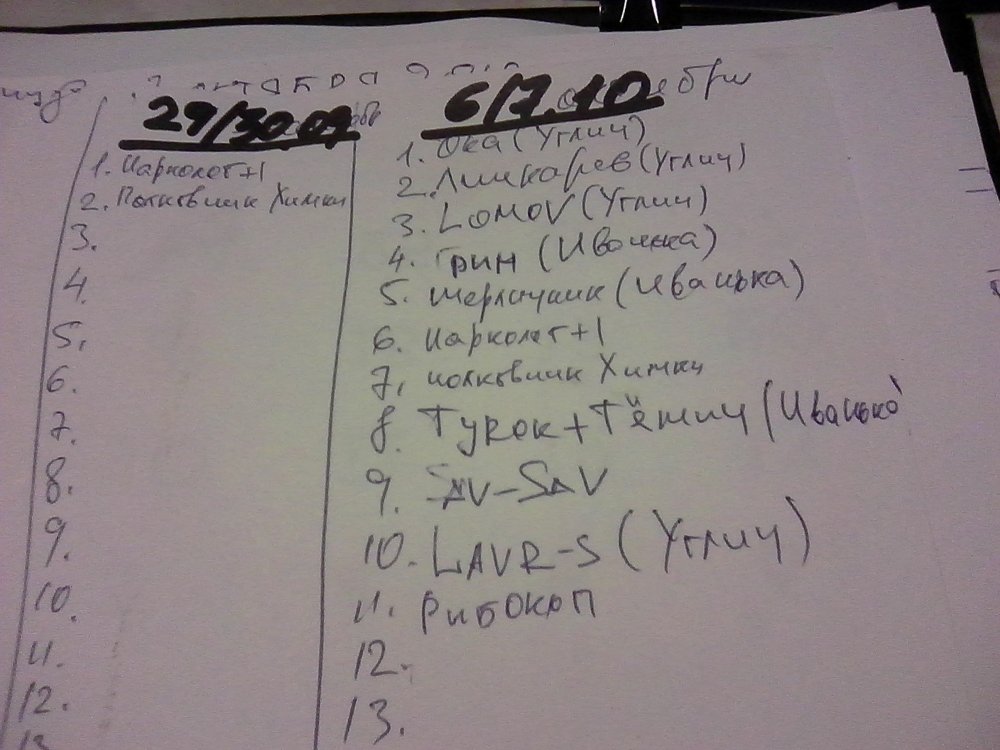 29/30.09
1. Нарколог+1
2. Полковник Химки
3.
4.
5.
6.
7.
8.
9.
10.
11.
12.
13
6/7.10
1. Ока (Углич)
2. Линкарев (Углич)
3. LOMOV (Углич)
4. Грин (Иванька)
5. (Иванька)
6. Нарколог+1
7. полковник Химки
8. Турок + (Иванько
9. SAV-SAV
10. LAVR-S (Углич)
11. РИБОКОП
12.
13.